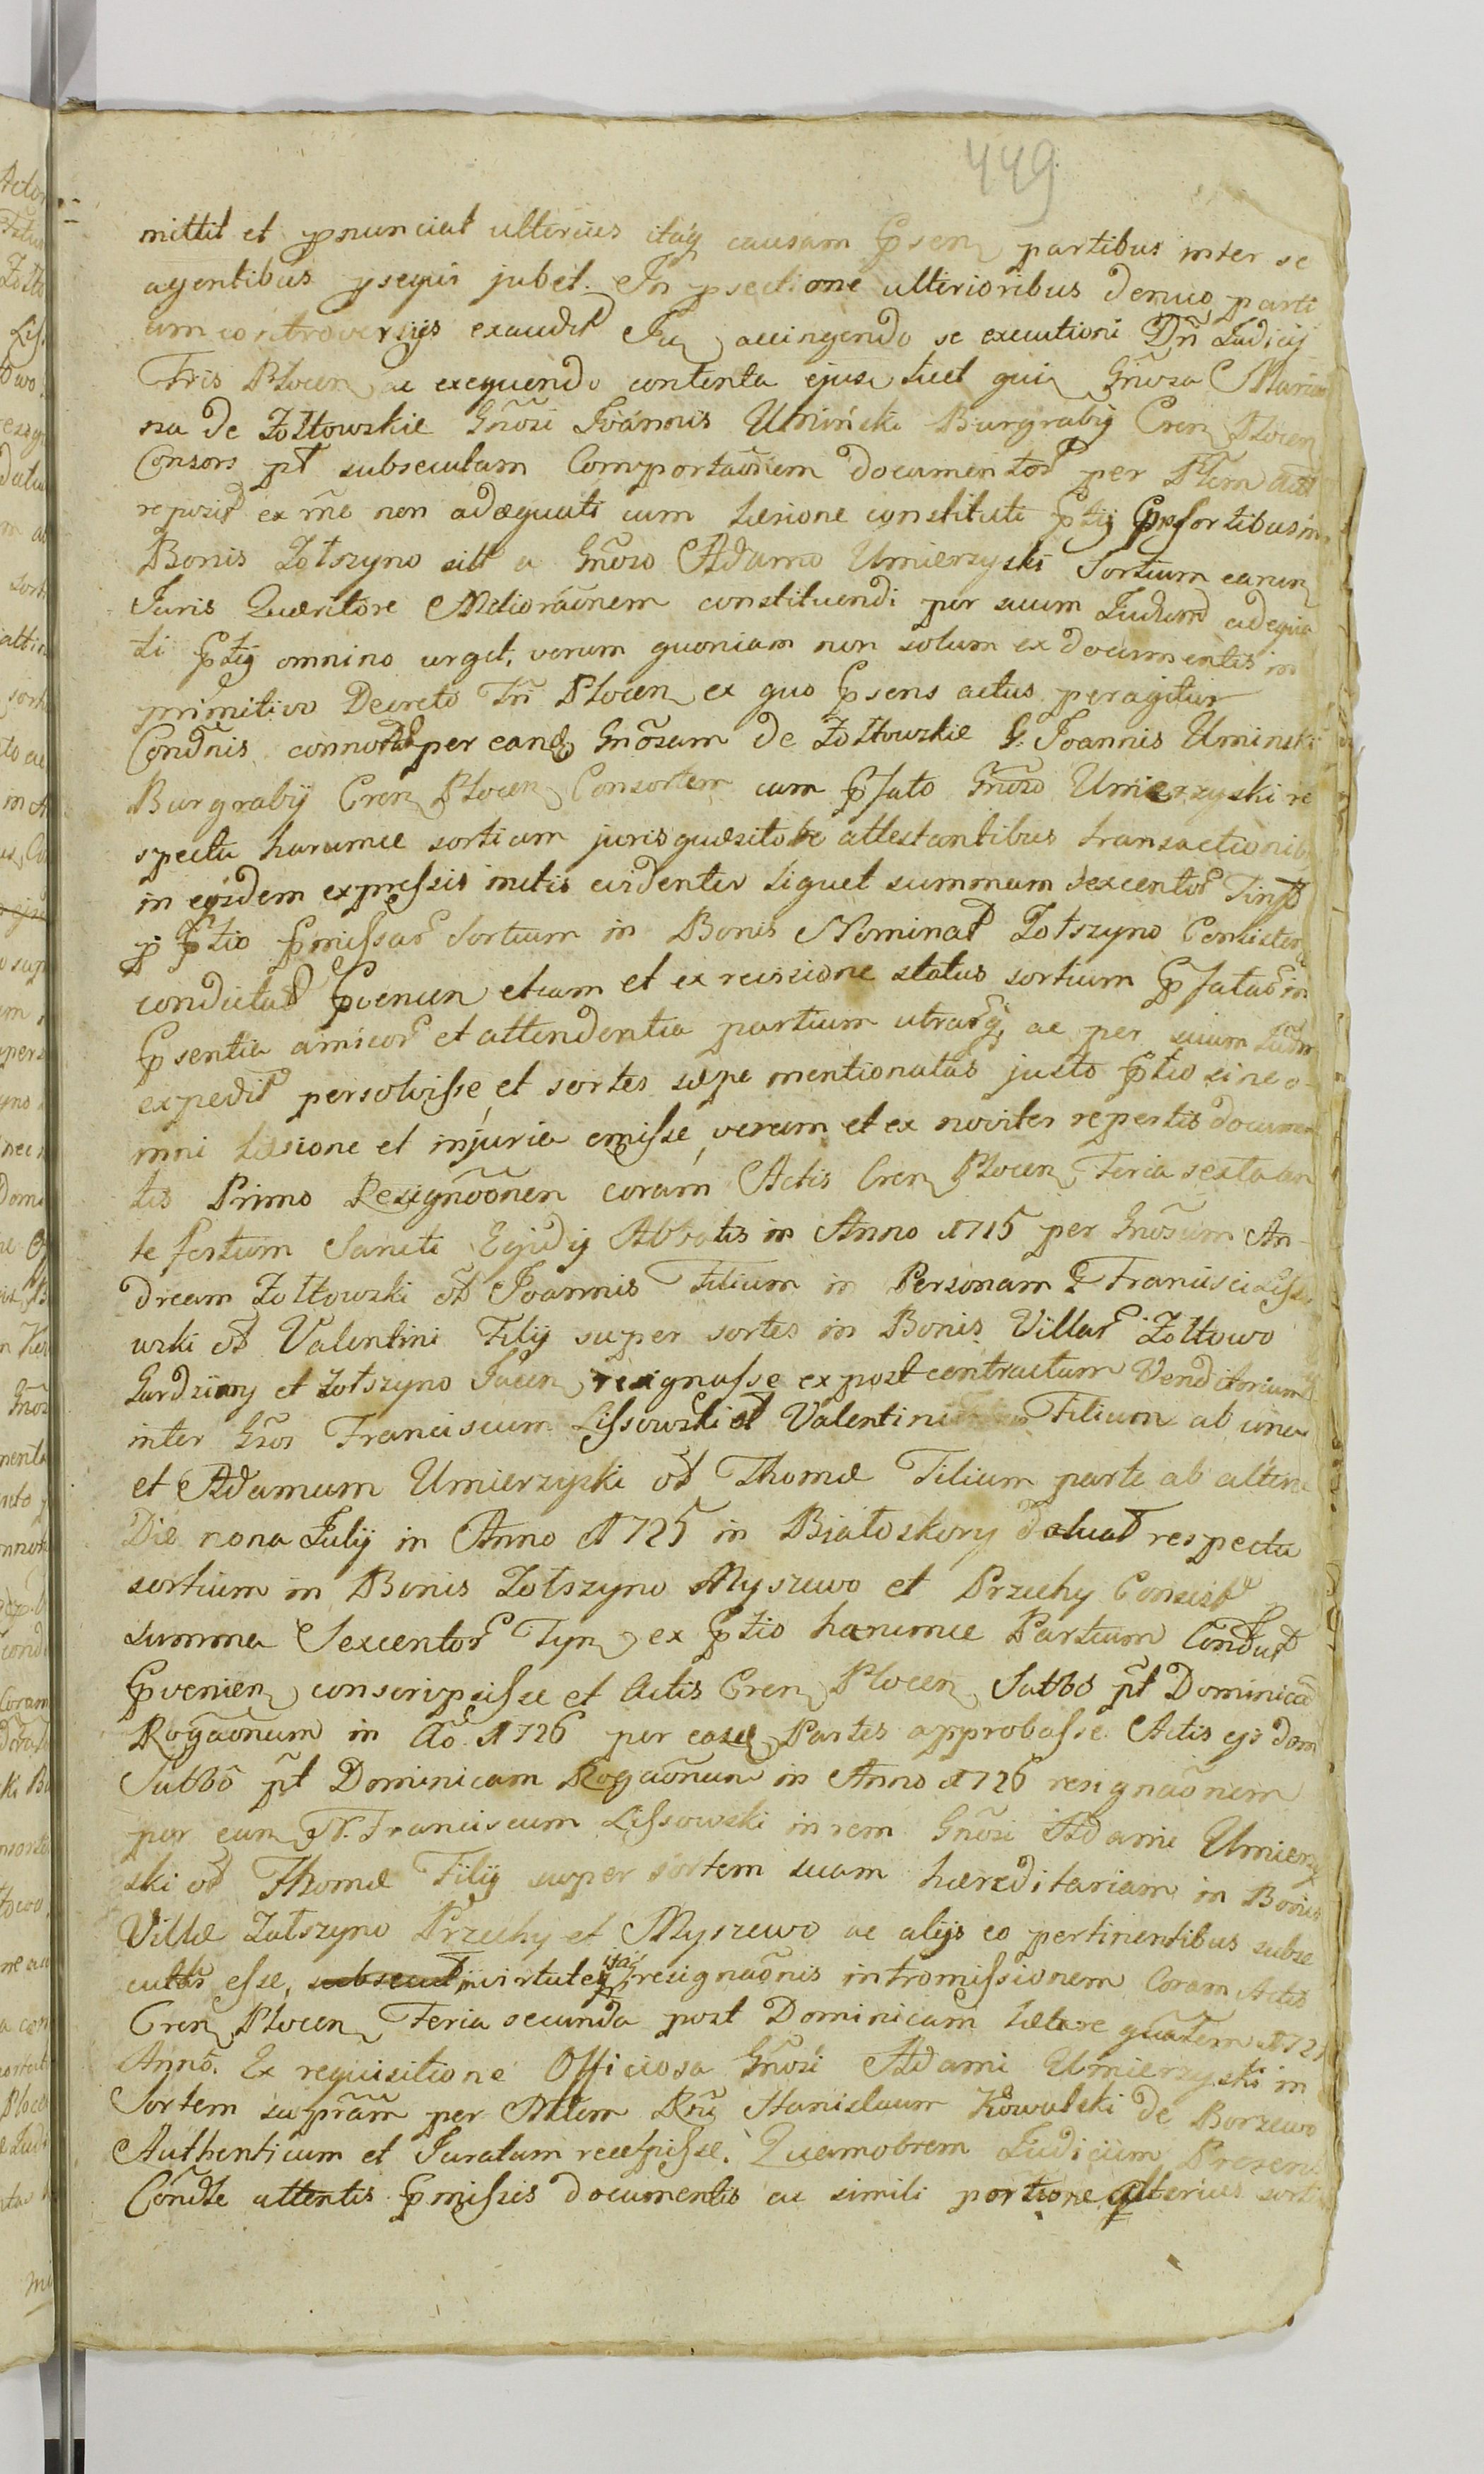 449
mittit et pnunciat ulterius itaq causam Psen partibus inter se
agentibus psequi jubet. In psectione ulterioribus denuo parti
um controversijs exaudit accingendo se executioni Dñi Judicij
Tris Plocen ac exequendo contenta ejus licet Gñosa Marian
na de Zołtowskie Gñosi Joannis Uminski Burgrabij Cren Plocen
Consors pt subsecutam Comportaõnem documentor per Ptem Act
reposit ex rne non adæquati cum læsione constituti Ptij sortibus in
Bonis Zołszyno sitt a Gñoso Adamo Umierzyski Sortium earun
Juris Quæsitore Melioraõnem constituendi per suum Judium adequa
ti Ptij omnino urget, verum quoniam non solum ex documentis in
primitivo Decreto Trī Plocen ex quo Psens actus peragitur
Condnis connotat per eand Gnõsam de Zołtowskie G. Joannis Uminski
Burgrabij Cren Plocen Consortem cum Pfato Gñoso Umierzyski re
spectu harumce sortium jurisquæsitore attestantibus transactionib
in ejsdem expressis metis evidenter liquet summam sexcentor Tinf
p Ptio Pmissar Sortium in Bonis Nominat Zołszyno Consisten
condictat Pvenien etiam et ex revisione status sortium Pfatar in
Psentia amicor et attendentia partium utrarq, ac per suum Judm
expedit persolvisse, et sortes sæpe mentionatas justo Ptio sine o-
mni læsione et injuria emisse, verum et ex noviter repertis documen
tis Primo Resignõonen coram Actis Cren Plocen Feria sexta an
te festum Sancti Egidij Abbatis in Anno 1715 per Gnosum An-
dream Zołtowski ol Joannis Filium in Personam G Francisci Lisso
wski ol Valentini Filij super sortes in Bonis Villar Zołtowo
Gurdziny et Zołszyno Jacen resignasse ex post contractum Venditorium
inter Gsos Franciscum Lissowski ol Valentini Filium ab una
et Adamum Umierzyski ol Thomæ Filium parte ab altera
Die nona Julij in Anno 1725 in Białoskory datuat respectu
sortium in Bonis Zołszyno Myszewo et Przechy Consist
summa Sexcentor Tyn ex Ptio harumce Partium Condict
Pvenien conscripsisse et Actis Cren Plocen Sabbo pt Dominica
Rogaõnum in Aõ 1726 per easd Partes approbasse Actis ejsdem
Sabbõ pt Dominicam Rogaõnum in Anno 1726 resignaõnem
per eun N. Franciscum Lissowski in rem Gnõsi Adami Umierzy
ski ol Thomæ Filij super sortem suam hæreditariam in Bonis
Villæ Zołszyno Przechy et Myszewo ac alijs eo pertinentibus subse
cutts esse, virtute resignaõnis intromissionem Coram Actis
Cren Plocen Feria secunda post Dominicam Lætare
Anno. Ex requisitione Officiosa Gnosi Adami Umierzyski in
Sortem supram per Mtem Rñi Stanislaum Kowalski de Borzewo
Authenticum et Juratum recepisse. Quamobrem Judicium Presens
Condte attentis Pmissis documentis ac simili portione alterius sortis